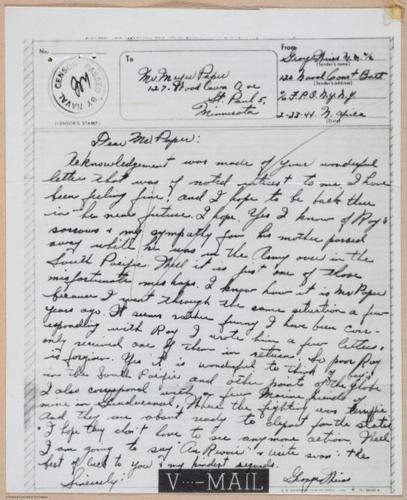 No.
To
From
(Sender's name)
Mr. Meyer Paper
127 Woodlawn Ave
St. Paul 5,
Minnesota
120 Naval Const Batt
(Sender's address)
% F.P.O. N.Y. N.Y.
2-23-44 N. Africa
(Date)
PASSED BY NAVAL CENSOR
(CENSOR'S STAMP)
Dear Mr. Paper:
Acknowledgement was made of your wonderful
letter that was of noted interest to me. I have
been feeling fine, and I hope to be back there
in the near future. I hope. Yes I know of Roy's
sorrows & my sympathy for his mother passed
away while he was in the Army over in the
South Pacific. Well it is just one of those
misfortunate mishaps. I know how it is Mr Paper
because I went through the same situation a few
years ago. It seems rather funny I have been corr-
esponding with Roy I wrote him a few letters &
only received one of them in return, the poor Roy
is forgiven. Yes it is wonderful to think of boys
in the South Pacific and other points of the globe
I also correspond with a few Marine friends of
mine in Guadalcanal, where the fighting was terrific
And they are about ready to depart for the states
I hope they don't have to see anymore action. Well
I am going to say Au Revoir & write soon: the
best of luck to you & my kindest regards.
Sincerely:
V···-MAIL